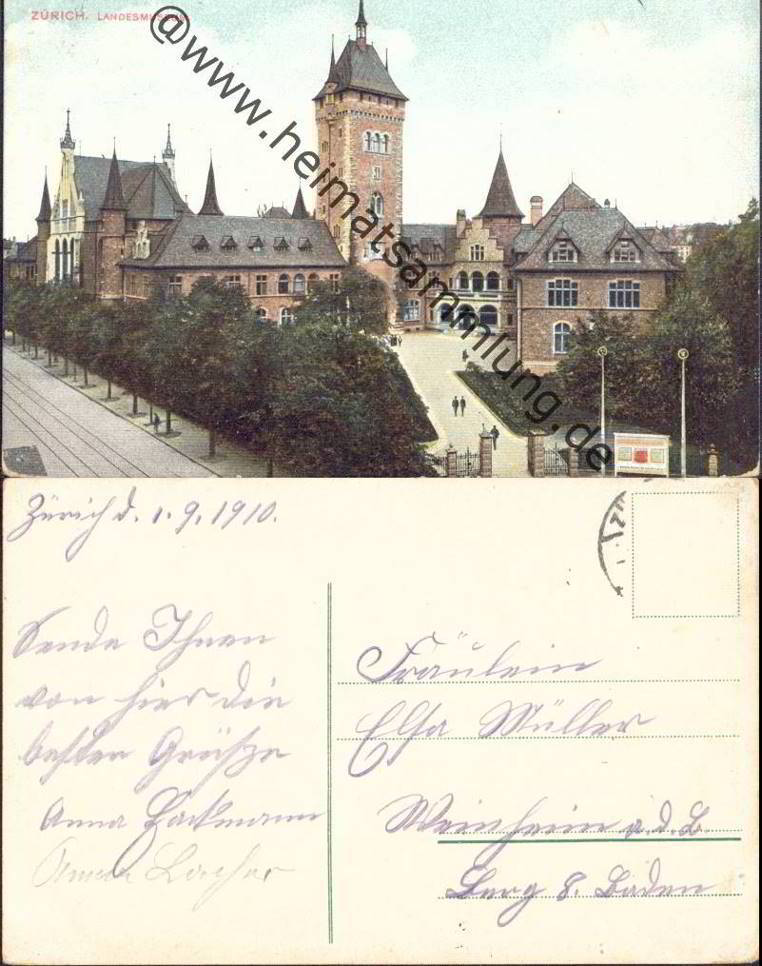 ZÜRICH. LANDESMUSEUM
@www.heimatsammlung.de
Zürich d. 1.9.1910.
Sende Ihnen
von hier die
besten Grüße
Anna Hackmann
Locher
Fräulein
Elsa Müller
Weinheim a.d.B.
Berg 8. Baden